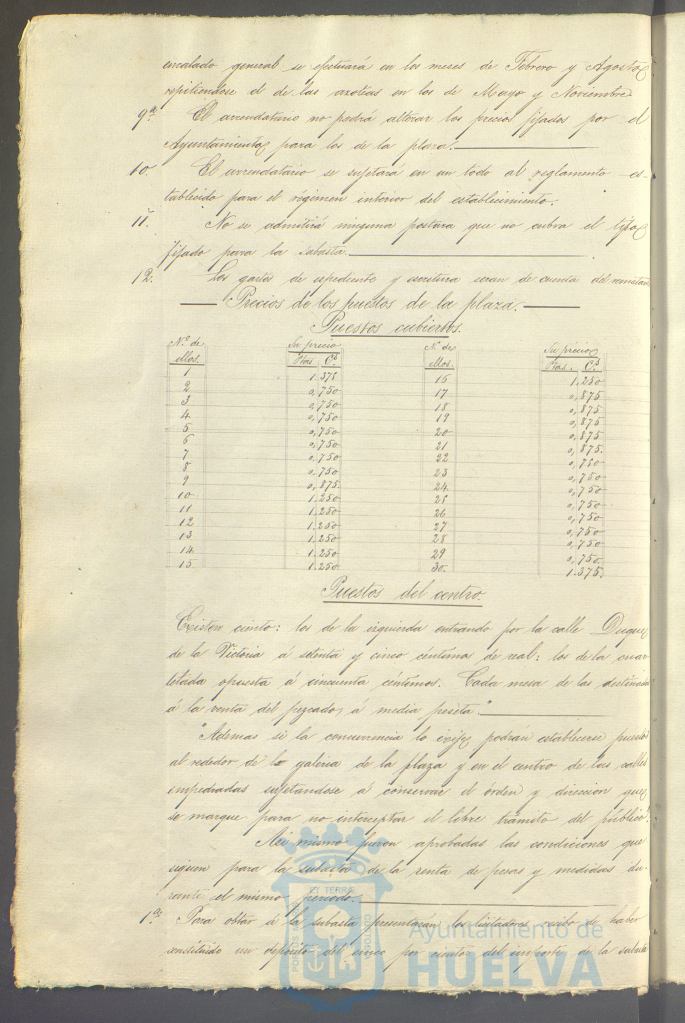 encalado general se efectuará en los meses de Febrero y Agosto
repitiendose el de las azoteas en los de Mayo y Noviembre
9ª El arrendatario no podrá alterar los precios fijados por el
Ayuntamiento para los de la plaza.
10. El arrendatario se sujetara en un todo al reglamento es-
tablecido para el régimen interior del establecimiento.
11. No se admitirá ninguna postura que no cubra el tipo
fijado para la subasta.
12. Los gastos de espediente y escritura seran de cuenta del
Precios de los puestos de la plaza.
Puestos cubiertos.
Nº de ellos. Su precio Nº de ellos. Su precio
Ptas. Cs Ptas. Cs
1 1.375 16 1.250
2 0,750 17 0,875
3 0,750 18 0,875
4 0,750 19 0,875
5 0,750 20 0,875
6 0,750 21 0,875
7 0,750 22 0,750
8 0,750 23 0,750
9 0,875 24 0,750
10 1.250 25 0,750
11 1.250 26 0,750
12 1.250 27 0,750
13 1.250 28 0,750
14 1.250 29 0,750
15 1.250 30 1.375
Puestos del centro.
Existen ciento: los de la izquierda entrando por la calle Duque
de la Victoria á setenta y cinco céntimos de real: los de la cuar-
telada opuesta á cincuenta céntimos. Cada mesa de las destinadas
á la venta del pezcado, á media peseta."
"Ademas si la concurrencia lo exije podrán establecerse puestos
al rededor de la galeria de la plaza y en el centro de las calles
empedradas sujetandose á conservar el órden y direccion que
se marque para no interceptar el libre tránsito del público.
Asi mismo fueron aprobadas las condiciones que
siguen para la subasta de la renta de pesas y medidas du-
rante el mismo periodo.
1ª Para obtar á la subasta presentaran los licitadores recibo de haber
constituido un depósito del cinco por ciento del importe de la subasta
ET TERRAE
Ayuntamiento de
HUELVA